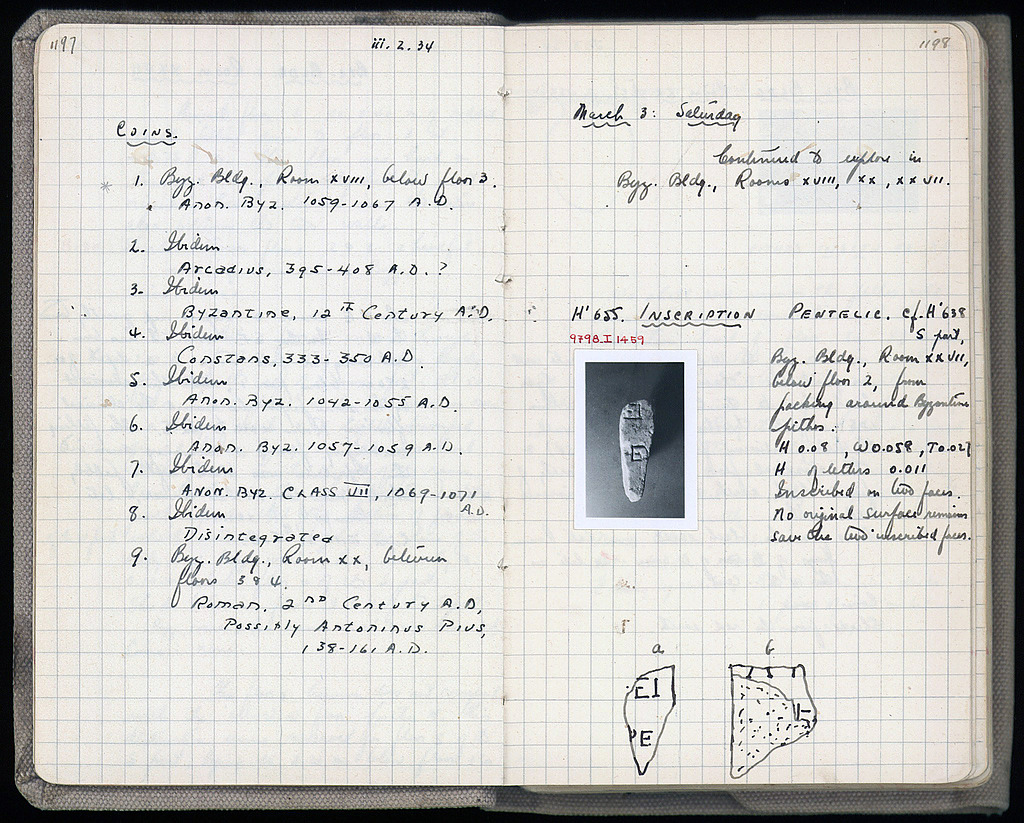 1197
iii.2.34
COINS.
1. Byz. Bldg., Room XVIII, below floor 3.
Anon. Byz. 1059-1067 A.D.
2. Ibidem
Arcadius, 395-408 A.D.?
3. Ibidem
Byzantine, 12th Century A.D.
4. Ibidem
Constans, 333-350 A.D
5. Ibidem
Anon. Byz. 1042-1055 A.D.
6. Ibidem
Anon. Byz. 1057-1059 A.D.
7. Ibidem
Anon. Byz. CLASS VII, 1069-1071
A.D.
8. Ibidem
Disintegrated
9. Byz. Bldg., Room XX, between
floors 3 & 4.
Roman, 2ND Century A.D,
Possibly Antoninus Pius,
138-161 A.D.
1198
March 3: Saturday
Continued to explore in
Byz. Bldg., Rooms XVIII, XX, XXVII.
H'655. INSCRIPTION PENTELIC. Cf. H'638
S part,
9798. I 1459
Byz. Bldg., Room XXVII,
below floor 2, from
packing around Byzantine
pithos.
H 0.08, W 0.058, T 0.027
H of letters 0.011
Inscribed on two faces.
No original surface remains
save the two inscribed faces.
a b
EI
PE